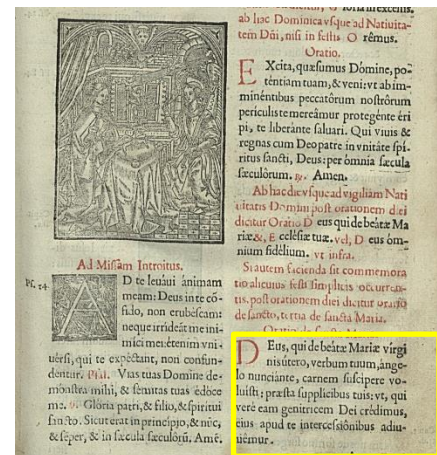 Ad Missam Introitus.
Ps. 24.
AD te leuáui ánimam
meam: Deus in te cō-
fido, non erubéscam:
neque irrídeāt me ini-
míci mei: étenim vni-
uérsi, qui te expéctant, non confun-
dentur. Psal. Vias tuas Domine de-
mōnstra mihi, & semitas tuas edoce
me. Glória patri, & filio, & spiritui
sancto. Sicut erat in principio, & nūc,
& sēper, & in sæcula sæculōrū. Amē.
in excelsis.
ab hac Dominica vsque ad Natiuita-
tem Dñi, nisi in festis O rêmus.
Oratio.
EXcita, quæsumus Dómine, po-
téntiam tuam, & veni: vt ab im-
minéntibus peccatórum nostrórum
perículis te mereámur protegénte éri
pi, te liberánte saluari. Qui viuis &
regnas cum Deo patre in vnitáte spí-
ritus sancti, Deus: per ómnia sæcula
sæculórum. ℞. Amen.
Ab hac die vsque ad vigiliam Nati
uitatis Domini post orationem diei
dicitur Oratio D eus qui de beátæ Ma
riæ &, E cclésiæ tuæ. vel, D eus óm-
nium fidélium. vt infra.
Si autem facienda sit commemora
tio alicuius festi simplicis occurren-
tis, post orationem diei dicitur oratio
de sancto, tertia de sancta Maria.
DEus, qui de beátæ Mariæ virgi
nis útero, verbum tuum, ánge-
lo nunciánte, carnem suscípere vo-
luísti: præsta supplícibus tuis: vt, qui
verè eam genitrícem Dei crédimus,
eius apud te intercessiónibus adiu-
uémur.